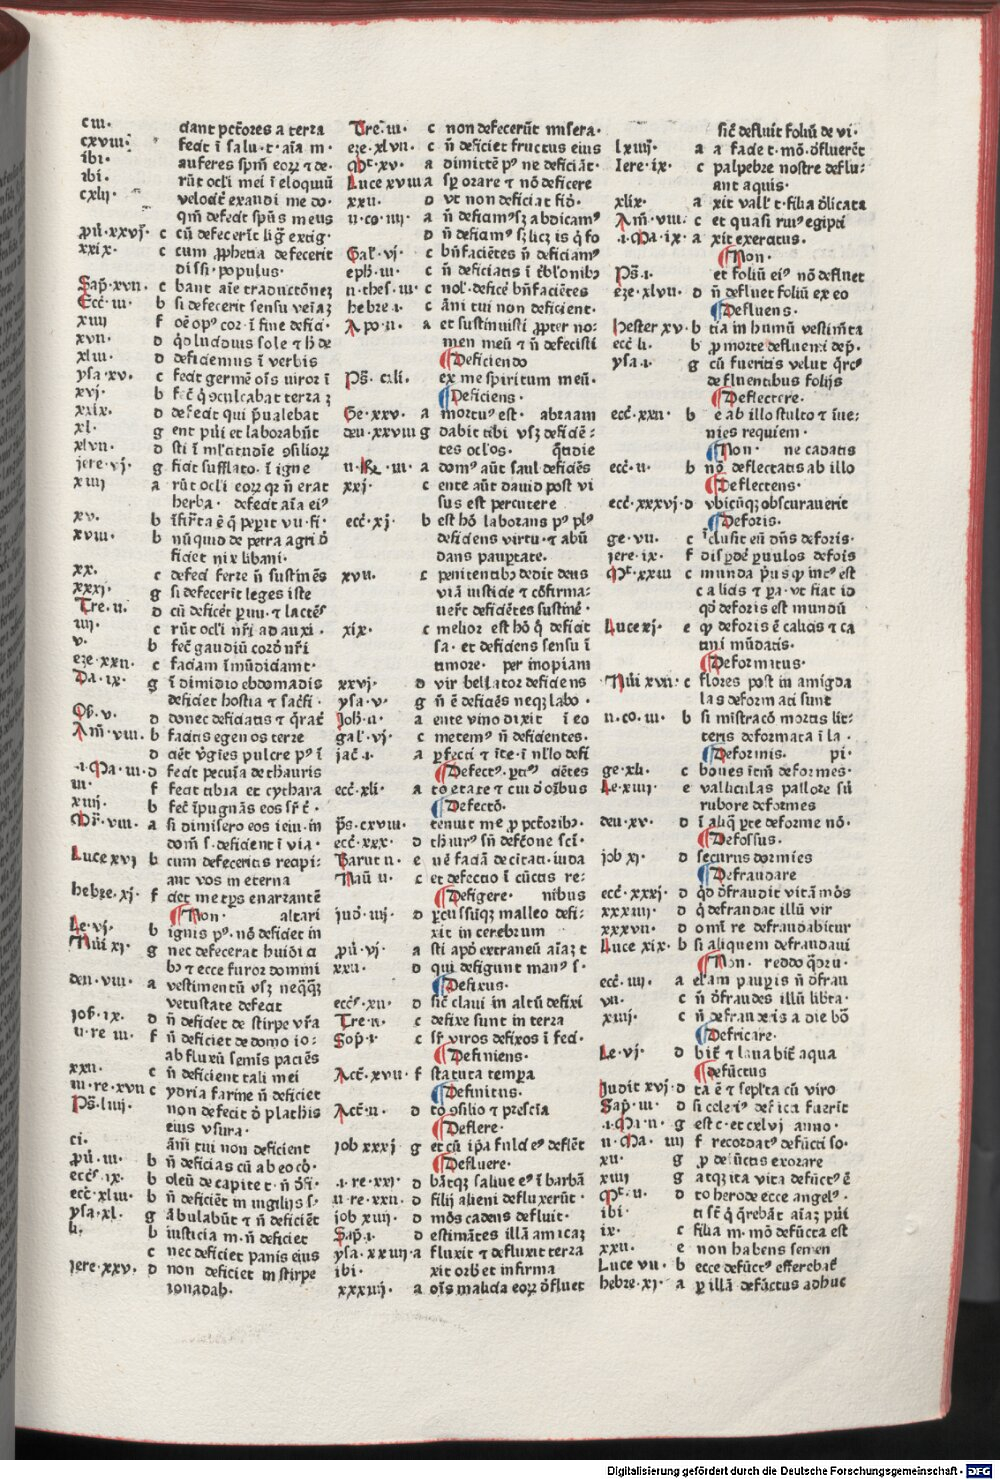 ciii·
dant pctōres a terra
cxviii·
fecit ī salu·t·aīa m·
ibi·
auferes spm̄ eoꝝ ⁊ de·
ibi·
rūt ocl̓i mei ī eloquiū
cxlij·
velocit̓ exaudi me do·
qm̄ defecit spūs meus
c cū defecerit̓ lig̓ extig·
xxix· c cum ꝓphetia defecerit
dissi·populus·
Sap̄·xvii· c bant aīe traductōnez
Ecc̓·iii· b si defecerit sensu veīaꝫ
xiiij f oē opꝰ coꝛ·ī fine defici·
xvii· d
xliii· d deficiemus ī verbis
ysa·xv· c fecit germē oīs uiroꝛ ī
xvj· b
xxix· d defecit qui p̄ualebat
xl· g ent pūi et laborabūt
xlvii· d
jere·vj· g ficit sufflato·ī igne
xiiij a rūt ocl̓i eoꝝ qꝛ n̄ erat
herba· defecit aīa eiꝰ
xv· b
xviii· b nūquid de petra agri d̓
ficiet nix libani·
xx· c defeci ferre n̄ sustinēs
xxxj· g si defecerit leges iste
Tre·ii· d cū defic̄et puu·⁊ lactēs
iiij· c rūt ocl̓i nr̄i ad auxi·
v· b fec̓ gaudiū cordꝭ nr̄i
eze·xxii· c faciam īmūdiciam t·
Da·ix· g ī dimidio ebdomadis
deficiet hostia ⁊ sac̓fi·
Os̄·v· d donec deficiatis ⁊ q̄rat̓
Am̄·viii· b facitis egenos terre
d
·i·Ma·iii·d fecit pecuīa de thauris
iii· f fecit tibia et cythara
xiiij·
Mr̄·viii· a si dimisero eos ieiu·in
dom̄ s·deficient ī via·
Luce xvj b cum defeceritis recipi·
ant vos in eterna
hebre·xj· f ciet me tp̄s enarrantē
¶Non· altari
Le·vj· b ignis pꝰ·nō deficiet in
Nūi xj· g nec defecerat huiōi a
bꝫ ⁊ ecce furor domini
deu·viii· a vestimentū vsꝫ neq̄q̄ꝫ
vetustate defecit
job·ix· d n̄ deficiet de stirpe vr̄a
ii·re iii· f n̄ deficiet de domo io:
ab fluxū semīs paciēs
xxii· c n̄ deficient tali mei
iii·re·xvii c ydria farine n̄ deficiet
Ps̄·liiij· non defecit d̓ plathis
eius vsura·
ci· ām̄ tui non deficient
pū·iii· b n̄ deficias cū ab eo cō·
ecc̓s·ix· b oleū de capite t·n̄ d̓fi·
ecc̓·xliii· b n̄ deficiēt in uigiliis s·
ysa·xl· g ābulabūt ⁊ n̄ deficiēt
li· b iusticia m·n̄ deficiet
c nec deficiet panis eius
jere·xxv· d non deficiet in stirpe
ionadab·
Tre·iii· c non defecerūt misera·
eze·xlvii· c n̄ deficiet fructus eius
Mt̓·xv· a dimittē pꝰ ne deficiāt·
Luce xviii a sꝑ orare ⁊ nō deficere
xxii· d vt non deficiat fid̓·
ii·co·iiij· a n̄ deficiamꝰ sꝫ abdicamꝰ
d
Gal̓·vj· c bn̄faciētes n̄ deficiamꝰ
eph·iii· c
ii·thes·iii· c nol̓·defic̓e bn̄faciētes
hebre·i· c āni tui non deficient·
Apo·ii· a et sustinuisti ꝓpter no:
men meū ⁊ n̄ defecisti
¶Deficiendo
Ps̄·cxli· ex me spiritum meū·
¶Deficiens·
Ge·xxv· a mortuꝰ est· abraam
deu·xxviii g dabit tibi vsꝫ deficiē:
tes oclōs· q̄tidie
ii·Re·iii· a domꝰ aūt saul deficiēs
xxj· c ente aūt dauid post vi
sus est percutere
ecc̓·xj· b est hō laborans pꝰ plꝰ
deficiens virtu·⁊ abū
dans paupertate·
xvii· c penitentibꝫ dedit deus
viā iusticie ⁊ cōfirma:
uer̄t deficiētes sustinē·
xix· c melior est hō q̄ deficit
sa·et deficiens sensu ī
timore· per inopiam
xxvj· d vir bellator deficiens
ysa·v· g n̄ ē deficiēs neqꝫ labo·
Joh·ii· a ente vino dixit ī eo
gal̓·vj· c metemꝰ n̄ deficientes·
jac̓·i· a ꝑfecti ⁊ īte·ī nl̓lo defi
¶Defectꝰ·ptꝰ ciētes
ecc̓·xli· a to etate ⁊ cui d̓ oībus
¶Defectō·
ps̄·cxviii· tenuit me ꝓ pctōribꝫ·
ecc̓·xxx· d
Baruc ii· e
Naū ii· c et defectio ī cūctis re:
¶Defigere· nibus
jud̓·iiij· d pcussūqꝫ malleo defi:
xit in cerebrum
pū·vj· a sti apd̓ extraneū aīaꝫ t
xxii· d qui defigunt manꝰ s·
¶Defixus·
ecc̓s·xii· d sic̓ claui in altū defixi
Tre·ii· c defixe sunt in terra
Sop̄·i· c sr̄ viros defixos ī feci·
¶Definiens·
Act̓·xvii· f statuta tempora
¶Definitus·
Act̓·ii· d to ꝯsilio ⁊ prescia
¶Deflere·
job xxxj g et cū ip̄a fulci eꝰ deflēt
¶Defluere·
·i·re·xxj· d bātqꝫ saliue eꝰ ī barbā
ii·re·xxii· d filij alieni defluxerūt·
job xiiij· d mōs cadens defluit·
Sap̄·i· d estimātes illā amicaꝫ
ysa·xxiiij·a fluxit ⁊ defluxit terra
ibi· xit orbꝭ et infirma
xxxiij· a oīs malicia eoꝝ d̓fluet
sic̓ defluit foliū de vi·
lxiiij· a a facie t·mō·d̓fluerēt
Iere·ix· c palpebre nostre deflu:
ant aquis·
xlix· a xit vall̓ t·filia d̓licata
Am̄·viii· c et quasi riuꝰ egipti
·i·Ma·ix·a xit exercitus·
¶Non·
Ps̄·i· et foliū eiꝰ nō defluet
eze·xlvii· d n̄ defluet foliū ex eo
¶Defluens·
hester xv·b tia in humū vestimēta
ecc̓·li· b ꝓ morte defluenti dep̄·
ysa·i· g cū fueritis velut q̄rcꝰ
defluentibus folijs
¶Deflectere·
ecc̓·xxii· b e ab illo stulto ⁊ īue:
nies requiem·
¶Non· ne cadatis
ecc̓·ii· b nō deflectatis ab illo
¶Deflectens·
ecc̓·xxxvj·d vbicūqꝫ obscurauerit
¶Deforis·
ge·vii· c īclusit eū dn̄s deforis·
jere·ix· f disꝑdē ꝑuulos defoīs
Mt̓·xxiii c munda p̓us qꝫ intꝰ est
calicis ⁊ pa·vt fiat id
qd̓ deforis est mundū
Luce xj· e qꝫ deforis ē calicis ⁊ ca
tini mūdatis·
¶Deformitus·
Nūi xvii·c flores post in amigda
las deformati sunt
ii·co·iii· b si mistracō mortis lit:
teris deformata ī la·
¶Deformis· pi·
ge·xli· c boues itm̄ deformes·
Le·xiiij· e valliculas pallore sū
rubore deformes
deu·xv· d ī aliq̄ ꝑte deforme nō·
¶Defossus·
job xj· d securus dormies
¶Defraudare
ecc̓·xxxj· d
xxxiiij· d q̄ defraudat illū vir
xxxvii· d omī re defraudabitur
Luce xix· b si aliquem defraudaui
¶Non· reddo q̄dru·
ecc̓·iiij· a elam pauꝑis n̄ d̓frau
vii· c n̄ d̓fraudes illū libra·
xiiij· c n̄ defraudeis a die bō
¶Defricare·
Le·vj· d bit̓ ⁊ lauabit̓ aqua
¶defūctus
Judit xvj·d ta ē ⁊ sepl̓ta cū viro
Sap̄·iii· d si celeriꝰ defūcta fuerit
·i·Ma·ii· g est c·et cxlvj anno·
ii·Ma·iiij f recordatꝰ defūcti so·
xii· g ꝓ defūctis exorare
xiiij g atqꝫ ita vita defūctꝰ ē
Mt̓·ii· d to herode ecce angelꝰ·
ibi·
ix· c filia m·mō defūcta est
xxii· e non habens semen
Luce vii· b ecce defūctꝰ efferebat̓
hebre·xj· a ꝑ illā defūctus adhuc
Digitalisierung gefördert durch die Deutsche Forschungsgemeinschaft · DFG